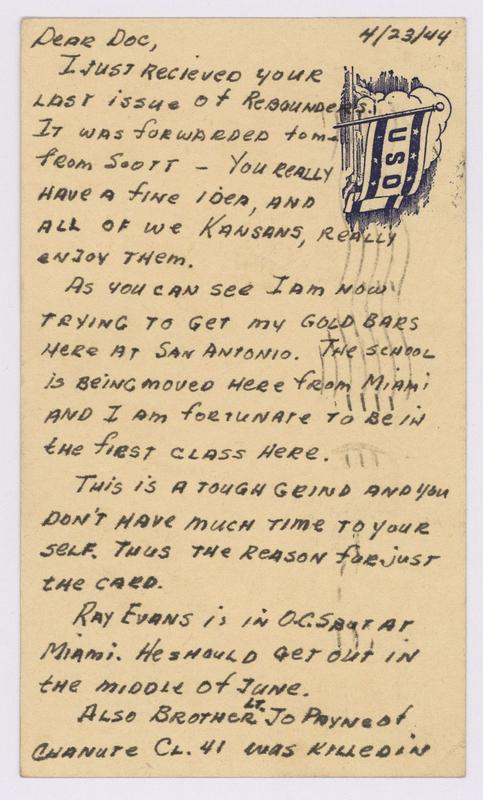 Dear Doc, 4/23/44
I just recieved your
last issue of Rebounders.
It was forwarded to me
from Scott – You really
have a fine idea, and
all of we Kansans, really
enjoy them.
USO
As you can see I am now
trying to get my gold bars
here at San Antonio. The school
is being moved here from Miami
and I am fortunate to be in
the first class here.
This is a tough grind and you
don't have much time to your
self. Thus the reason for just
the card.
Ray Evans is in O.C.S. at
Miami. He should get out in
the middle of June.
Also Brother Lt. Jo Payne of
Chanute Cl. 41 was killed in